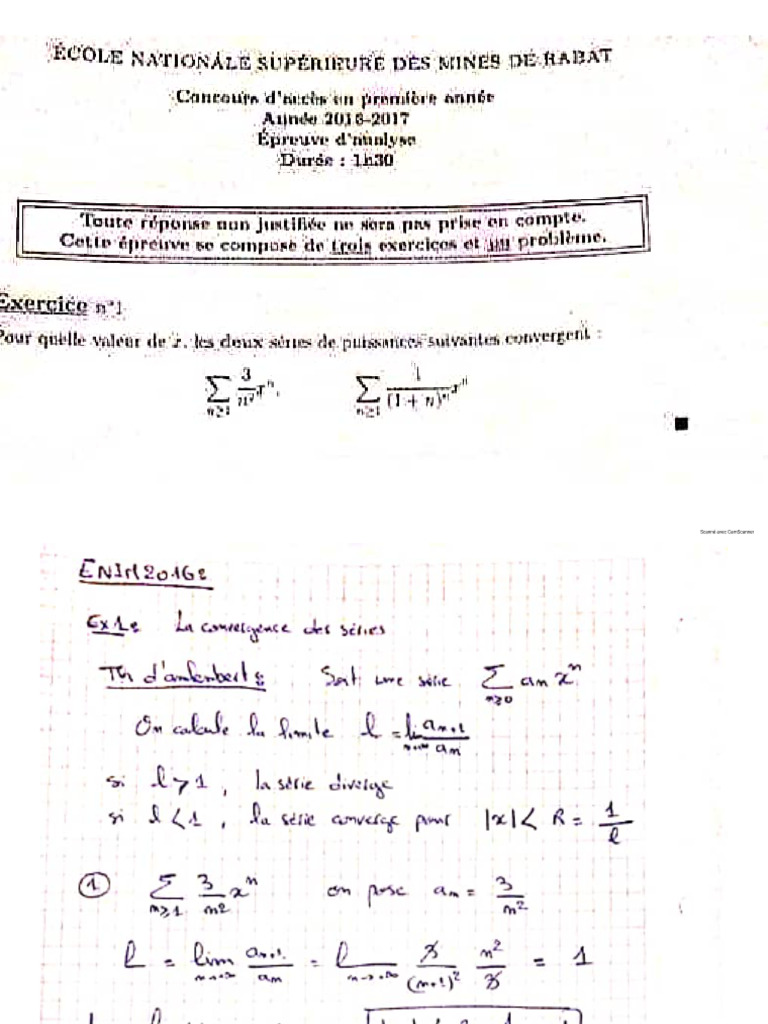 ÉCOLE NATIONALE SUPÉRIEURE DES MINES DE RABAT
Concours d'accès en première année
Année 2016-2017
Épreuve d'analyse
Durée : 1h30
Toute réponse non justifiée ne sera pas prise en compte.
Cette épreuve se compose de trois exercices et un problème.
Exercice n°1
Pour quelle valeur de x, les deux séries de puissances suivantes convergent :
∑_{n≥1} 3/n² xⁿ, ∑_{n≥1} 1/(1 + n)ⁿ xⁿ
Scanné avec CamScanner
ENIM 2016 :
Ex1 : La convergence des séries
Th d'alembert : Soit une série ∑_{n≥0} aₙ xⁿ
On calcule la limite l = lim_{n→+∞} aₙ₊₁/aₙ
si l > 1, la série diverge
si l < 1, la série converge pour |x| < R = 1/l
① ∑_{n≥1} 3/n² xⁿ on pose aₙ = 3/n²
l = lim_{n→+∞} aₙ₊₁/aₙ = l_{n→+∞} 3/(n+1)² n²/3 = 1